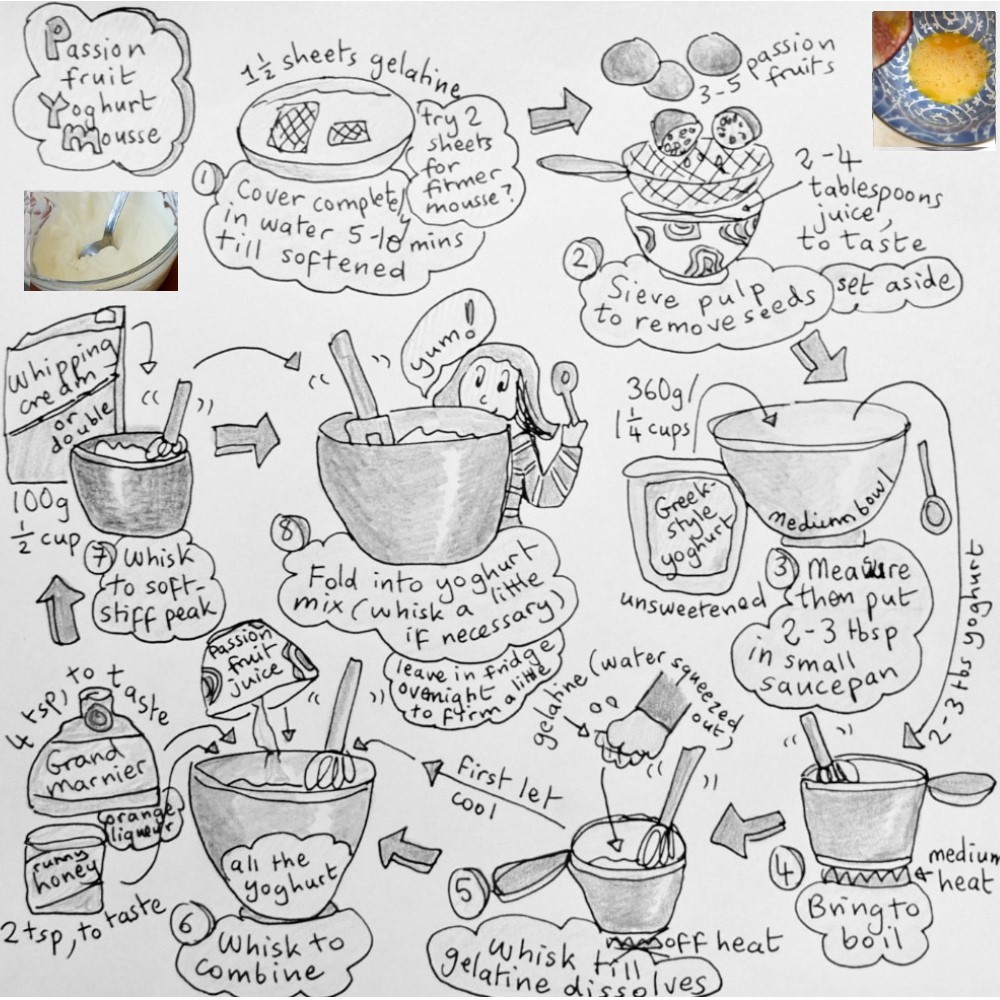 Passion
fruit
Yoghurt
Mousse
1½ sheets gelatine
try 2
sheets
for
firmer
mousse?
1
Cover completely
in water 5-10 mins
till softened
3-5 passion
fruits
2-4
tablespoons
juice,
to taste
2
Sieve pulp
to remove seeds
set aside
360g/
1¼ cups
Greek-
style
yoghurt
unsweetened
medium bowl
3 Measure
then put
2-3 tbsp
in small
saucepan
2-3 tbs yoghurt
4
medium
heat
Bring to
boil
gelatine (water squeezed
out)
5
off heat
Whisk till
gelatine dissolves
First let
cool
Passion
fruit
juice
4 tsp, to taste
Grand
marnier
orange
liqueur
runny
honey
2 tsp, to taste
all the
yoghurt
6
Whisk to
combine
Whipping
cream
or
double
100g
½ cup
7 Whisk
to soft-
stiff peak
yum!
8
Fold into yoghurt
mix (whisk a little
if necessary)
leave in fridge
overnight
to firm a little